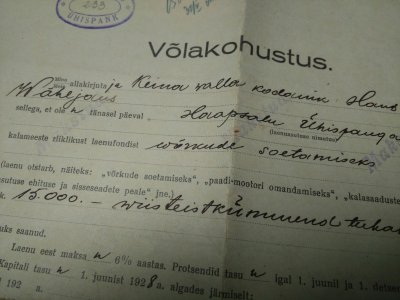 233
ÜHISPANK
Võlakohustus.
Mina
Meie allakirjutaja Keina valla kodanik Hans
sellega, et ole n tänasel päeval Haapsalu Ühispanga
(laenuasutuse nimetus)
kalameeste riiklikust laenufondist võrkude soetamiseks
(laenu otstarb, näiteks: „võrkude soetamiseks", „paadi-mootori omandamiseks", „kalasaaduste
ehituse ja sisseseadete peale" jne.)
15.000.— wiisteistkümmend tuha
uks saanud.
Laenu eest maksa n 6% aastas. Protsendid tasu n igal 1. juunil ja 1. detsem
Kapitali tasu n 1. juunist 1928 a. algades järmiselt:
192 a. 1. juunil 192